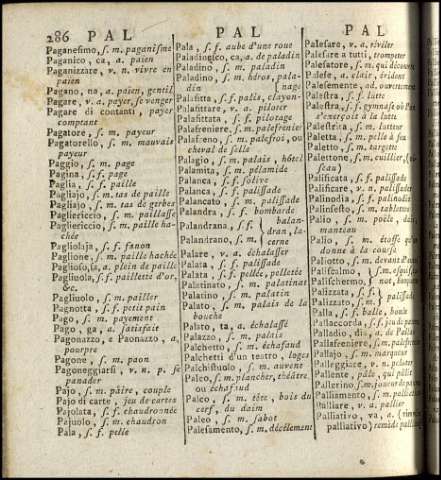 286 PAL PAL PAL
Paganesimo, s. m. paganisme
Paganico, ca, a. paien
Paganizzare, v. n. vivre en
paien
Pagano, na, a. paien, gentil
Pagare, v. a. payer, se venger
Pagare di contanti, payer
comptant
Pagatore, s. m. payeur
Pagatorello, s. m. mauvais
payeur
Paggio, s. m. page
Pagina, s. f. page
Paglia, s. f. paille
Pagliajo, s. m. tas de paille
Pagliajo, s. m. tas de gerbes
Pagliericcio, s. m. paillasse
Pagliericcio, s. m. paille ha-
chée
Pagliolaja, s. f. fanon
Paglione, s. m. paille hachée
Paglioso, sa, a. plein de paille
Pagliuola, s. f. paillette d'or,
&c.
Pagliuolo, s. m. pailler
Pagnotta, s. f. petit pain
Pago, s. m. payement
Pago, ga, a. satisfait
Pagonazzo, e Paonazzo, a.
pourpre
Pagone, s. m. paon
Pagoneggiarsi, v. n. p. se
panader
Pajo, s. m. paire, couple
Pajo di carte, jeu de cartes
Pajolata, s. f. chaudronnée
Pajuolo, s. m. chaudron
Pala, s. f. pelle
Pala, s. f. aube d'une roue
Paladinesco, ca, a. de paladin
Paladino, s. m. paladin
Paladino, s. m. héros, pala-
din [nage
Palafitta, s. f. palis, clayon-
Palafittare, v. a. palissader
Palafittata, s. f. pilotage
Palafreniere, s. m. palefrenier
Palafreno, s. m. palefroi, ou
cheval de selle
Palagio, s. m. palais, hôtel
Palamita, s. m. pélamide
Palanca, s. f. solive
Palanca, s. f. palissade
Palancato, s. m. palissade
Palandra, s. f. bombarde
Palandrana, s. f. } balan-
dran, la-
Palandrano, s. m. } cerne
Palare, v. a. échalasser
Palata, s. f. palissade
Palata, s. f. pellée, pelletée
Palatinato, s. m. palatinat
Palatino, s. m. palatin
Palato, s. m. palais de la
bouche
Palato, ta, a. échalassé
Palazzo, s. m. palais
Palchetto, s. m. échafaud
Palchetti d'un teatro, loges
Palchistuolo, s. m. auvent
Palco, s. m. plancher, théâtre,
ou échafaud
Palco, s. m. tête, bois du
cerf, du daim
Paleo, s. m. sabot
Palesamento, s. m. décélement
Palesare, v. a. révéler
Palesare a tutti, trompeter
Palesatore, s. m. qui découvre
Palese, a. clair, évident
Palesemente, ad. ouvertement
Palestra, s. f. lutte
Palestra, s. f. gymnase où l'on
s'exerçoit à la lutte
Palestrita, s. m. lutteur
Paletta, s. m. pelle à feu
Paletto, s. m. targette
Palettone, s. m. cuillier, (oi-
seau)
Palificata, s. f. palissade
Palificare, v. n. palissader
Palinodia, s. f. palinodie
Palinsesto, s. m. tablettes
Palio, s. m. poële, dais,
manteau
Palio, s. m. étoffe qu'on
donne à la course
Paliotto, s. m. devant d'autel
Paliscalmo, } s. m. esquif, ca-
Palischermo, } not,
Palizzata, s. f. }
Palizzato, s. m. }
Palla, s. f. balle, boule
Pallacorda, s. f. jeu de paume
Palladio, dia, a. de Pallas
Pallafreniere, s. m. palefrenier
Pallajo, s. m. marqueur
Palleggiare, v. n. peloter
Pallente, pâle, qui pâlit
Pallerino, s. m. joueur de paume
Palliamento, s. m. palliation
Palliare, v. a. pallier
Palliativo, va, a. (rimedio
palliativo) remède palliatif